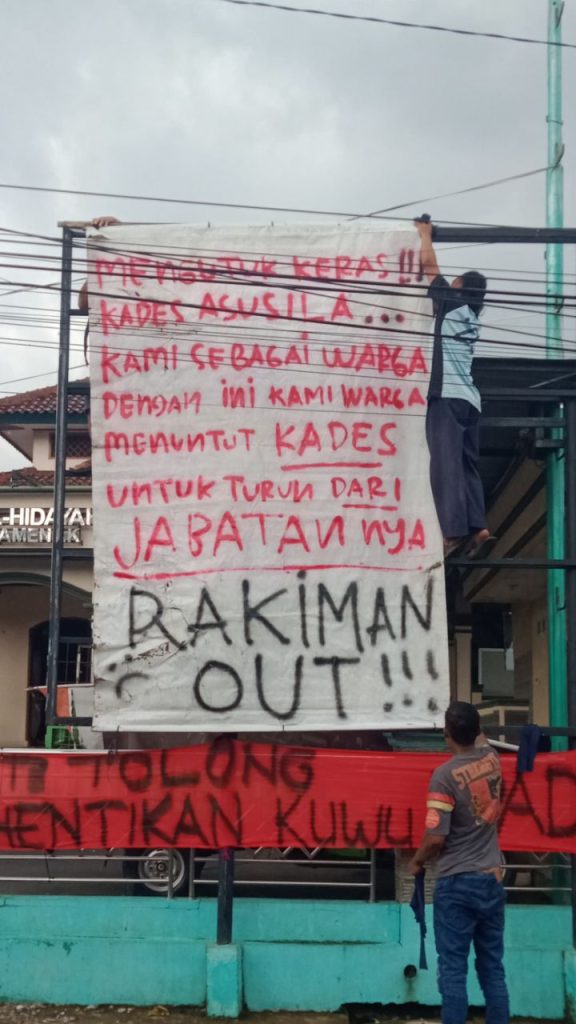 MENGUTUK KERAS !!!
KADES ASUSILA...
KAMI SEBAGAI WARGA
DENGAN INI KAMI WARGA
MENUNTUT KADES
UNTUK TURUN DARI
JABATAN NYA
RAKIMAN
OUT!!!
-HIDAYAH
TOLONG
HENTIKAN KUWU